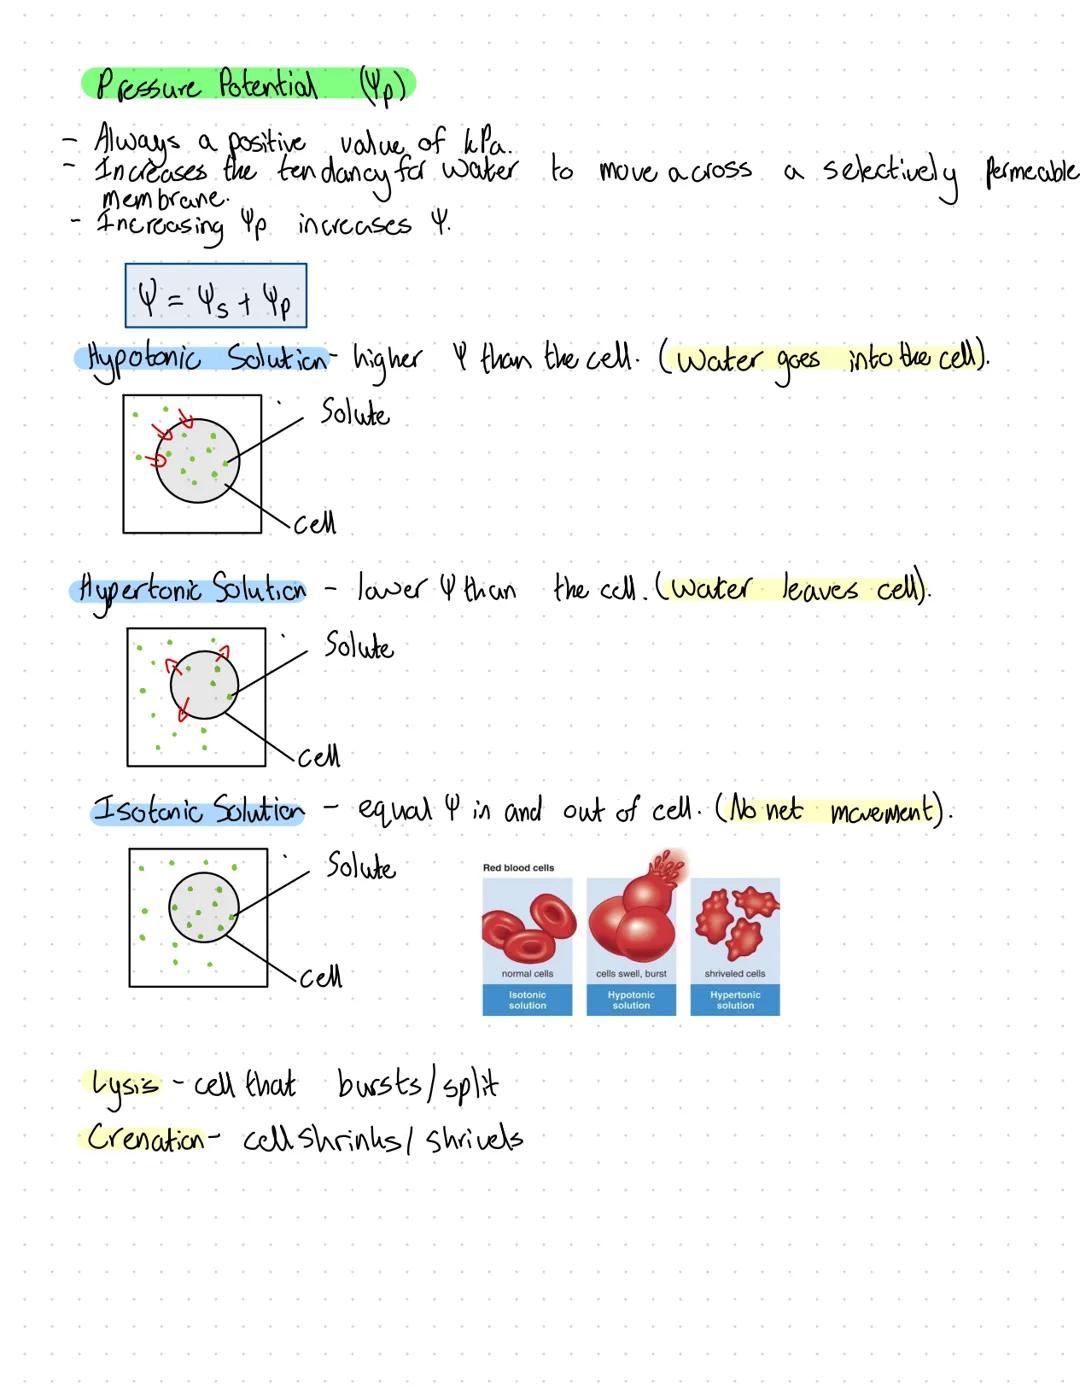 Pressure Potential (Ψp)
- Always a positive value of kPa.
- Increases the tendancy for water to move across a selectively permeable
membrane.
- Increasing Ψp increases Ψ.
Ψ = Ψs + Ψp
Hypotonic Solution - higher Ψ than the cell. (Water goes into the cell).
Solute
cell
Hypertonic Solution - lower Ψ than the cell. (Water leaves cell).
Solute
cell
Isotonic Solution - equal Ψ in and out of cell. (No net movement).
Solute
cell
Red blood cells
normal cells
Isotonic
solution
cells swell, burst
Hypotonic
solution
shriveled cells
Hypertonic
solution
Lysis - cell that bursts/split
Crenation - cell shrinks/ shrivels